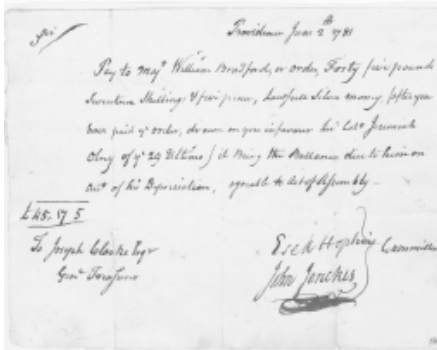 Sir/
Providence June 2th 1781
Pay to Majr William Bradford, or order, Forty five pounds
Seventeen Shillings & five pence, Lawfull Silver money, after you
have paid ye order, drawn on you in favour of Colo Jeremiah
Olny of ye 29 Ultimo / it Being the Ballance due to him on
acct of his Depreciation, agreable to Act of Assembly —
£ 45. 17 5
To Joseph Clarke Esqr
Genl Treasurer
Esek Hopkins
John Jenckes
Committee